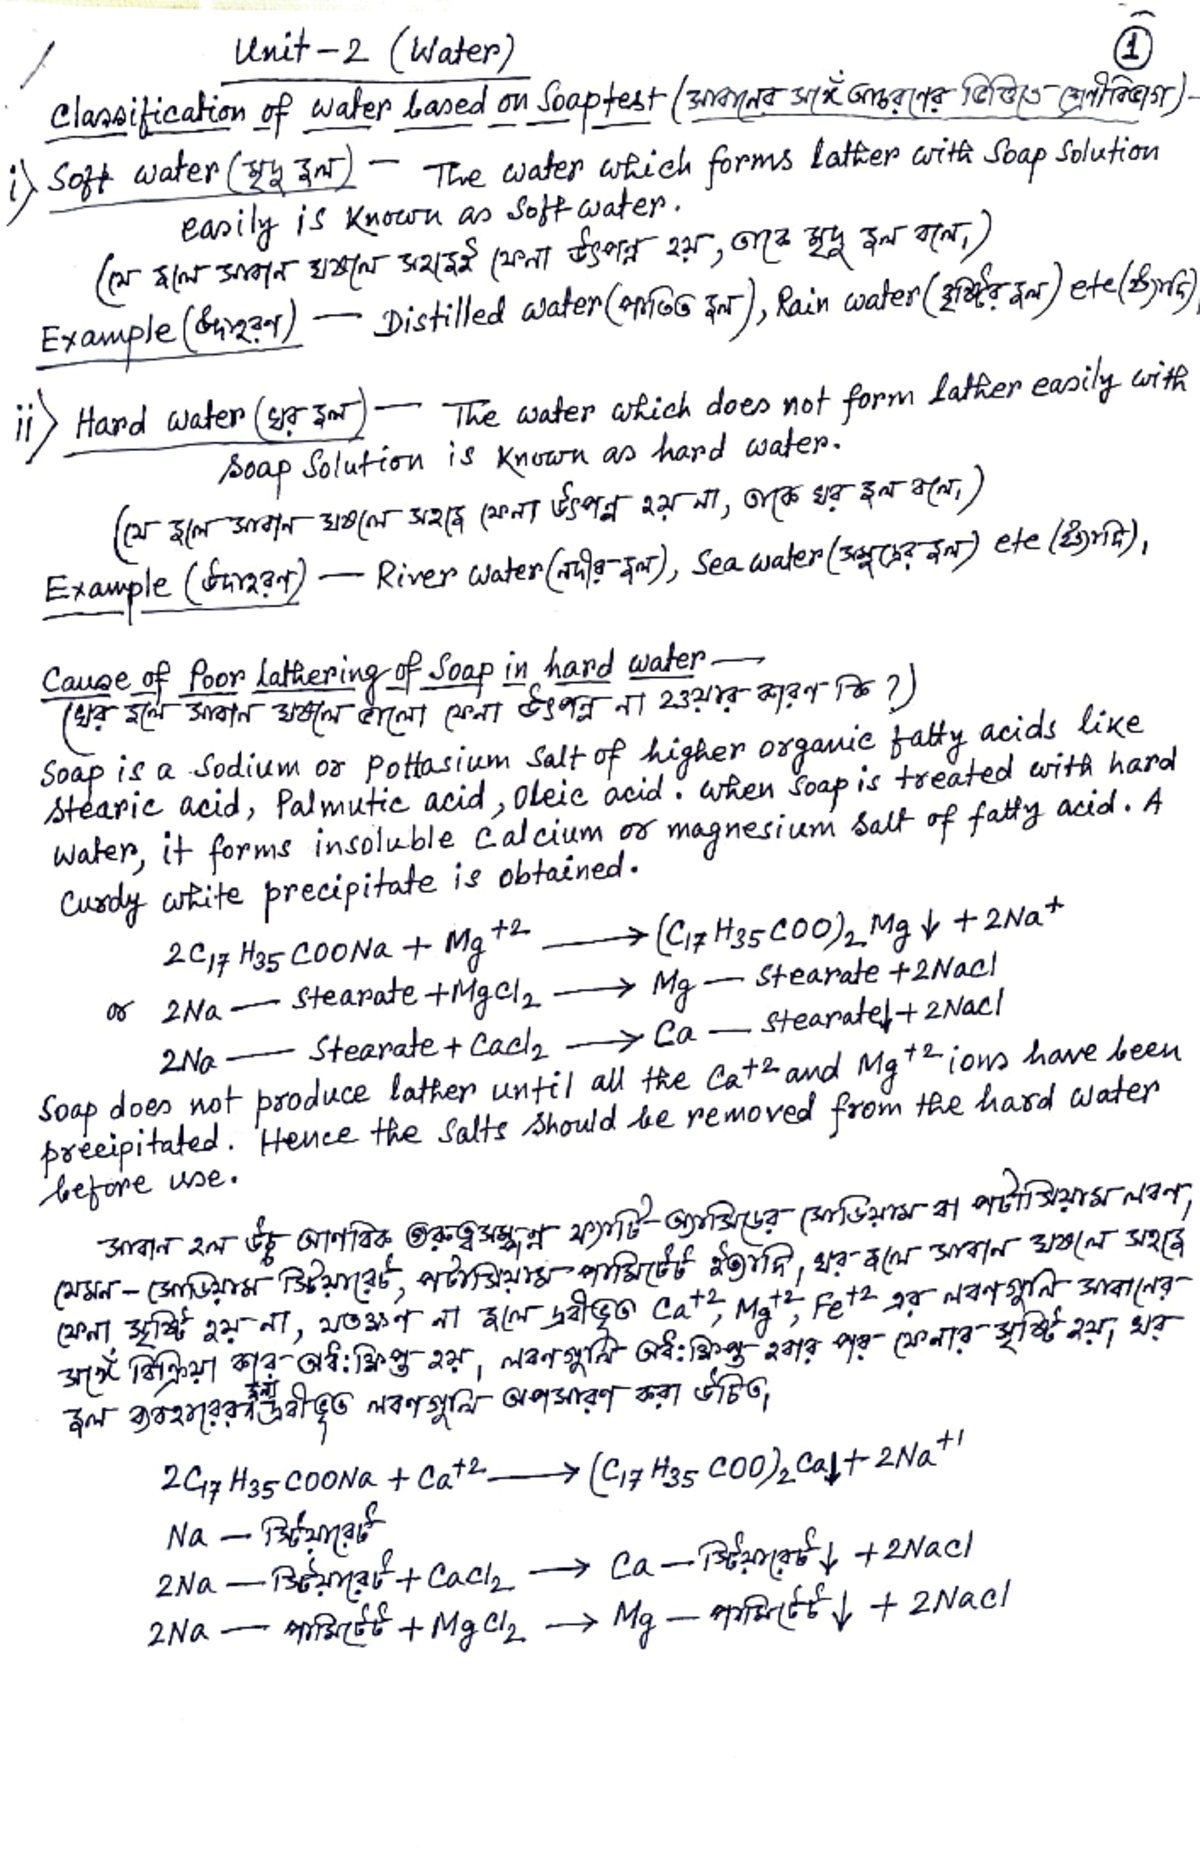 ①
Unit-2 (Water)
Classification of water based on Soap test (সাবানের সাথে আচরণের ভিত্তিতে শ্রেণীবিভাগ)-
i) Soft water (মৃদু জল) — The water which forms lather with Soap Solution
easily is Known as Soft water.
(যে জলে সাবান ঘষলে সহজেই ফেনা উৎপন্ন হয়, তাকে মৃদু জল বলে।)
Example (উদাহরণ) — Distilled water (পাতিত জল), Rain water (বৃষ্টির জল) etc (ইত্যাদি)।
ii) Hard water (খর জল) — The water which does not form lather easily with
Soap Solution is Known as hard water.
(যে জলে সাবান ঘষলে সহজে ফেনা উৎপন্ন হয় না, তাকে খর জল বলে।)
Example (উদাহরণ) — River water (নদীর জল), Sea water (সমুদ্রের জল) etc (ইত্যাদি)।
Cause of Poor lathering of Soap in hard water —
(খর জলে সাবান ঘষলে ভালো ফেনা উৎপন্ন না হওয়ার কারণ কি?)
Soap is a Sodium or Pottasium Salt of higher organic fatty acids like
Stearic acid, Palmutic acid, Oleic acid. When Soap is treated with hard
water, it forms insoluble Calcium or magnesium Salt of fatty acid. A
Curdy white precipitate is obtained.
2C₁₇H₃₅COONa + Mg⁺² ⟶ (C₁₇H₃₅COO)₂Mg↓ + 2Na⁺
or 2Na — Stearate + MgCl₂ ⟶ Mg — Stearate + 2NaCl
2Na — Stearate + CaCl₂ ⟶ Ca — Stearate↓ + 2NaCl
Soap does not produce lather until all the Ca⁺² and Mg⁺² ions have been
precipitated. Hence the Salts Should be removed from the hard water
before use.
সাবান হল উচ্চ আণবিক গুরুত্বসম্পন্ন ফ্যাটি-অ্যাসিডের সোডিয়াম বা পটাসিয়াম লবণ,
যেমন - সোডিয়াম স্টিয়ারেট, পটাসিয়াম পামিটেট ইত্যাদি, খর জলে সাবান ঘষলে সহজে
ফেনা সৃষ্টি হয় না, যতক্ষণ না জলে দ্রবীভূত Ca⁺², Mg⁺², Fe⁺² এর লবণগুলি সাবানের
সাথে বিক্রিয়া করে অধঃক্ষিপ্ত হয়, লবণগুলি অধঃক্ষিপ্ত হবার পর ফেনার সৃষ্টি হয়, খর
জল ব্যবহারের জন্য দ্রবীভূত লবণগুলি অপসারণ করা উচিত,
2C₁₇H₃₅COONa + Ca⁺² ⟶ (C₁₇H₃₅COO)₂Ca↓ + 2Na⁺¹
Na — স্টিয়ারেট
2Na — স্টিয়ারেট + CaCl₂ ⟶ Ca — স্টিয়ারেট↓ + 2NaCl
2Na — পামিটেট + MgCl₂ ⟶ Mg — পামিটেট↓ + 2NaCl